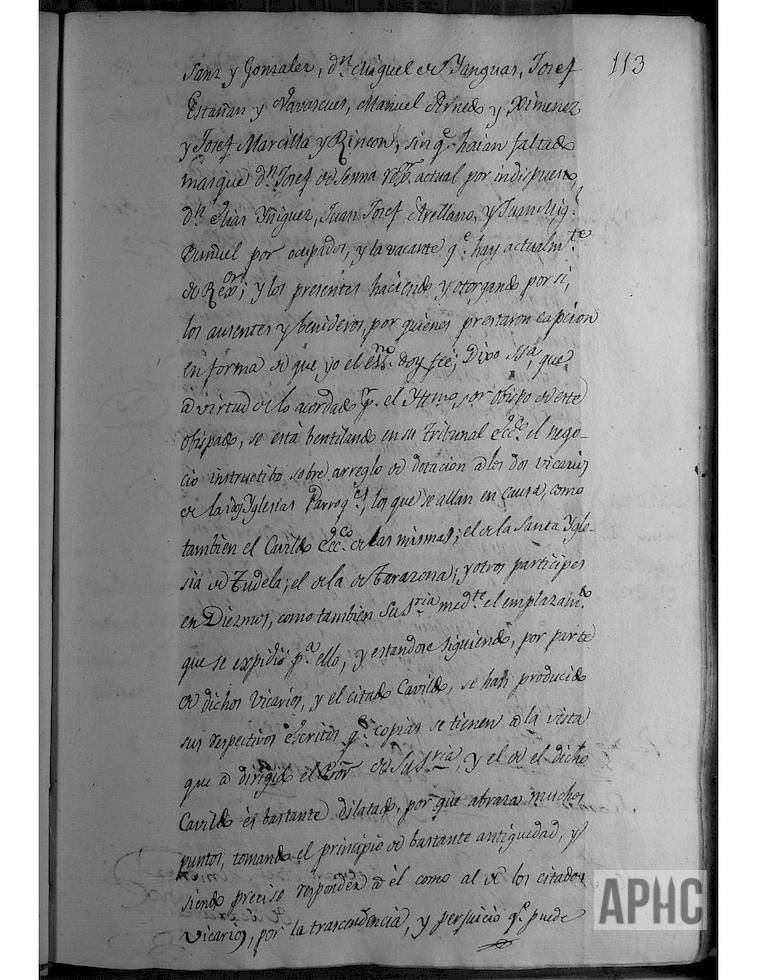 113
Sanz y Gonzalez, dn. Miguel de Yanguas, Josef
Estañan y Navascues, Manuel Arnedo y Ximenez
y Josef Marcilla y Rincon, sin qe. haian faltado
mas que dn. Josef de Serna actual por indispuesto,
dn. Elias Yñiguez, Juan Josef Arellano, y Juan Migl.
Buñuel por ocupados, y la vacante qe. hay actualmte.
de Rexor; y los presentes haciendo y otorgando por si,
los ausentes y benideros, por quienes prestaron capcion
en forma de que yo el essno. doy fée; Dixo Sria, que
a virtud de lo acordado pr. el Yttmo. sor. obispo de este
obispado, se está bentilando en su Tribunal Eccco. el nego-
cio instructibo sobre arreglo de dotacion a los dos vicarios
de las dos Yglesias Parroqs., los que se allan en causa, como
tambien el Cavildo Eccco. de las mismas; el de la Santa Ygle-
sia de Tudela; el de la de Tarazona; y otros participes
en Diezmos, como tambien su Sria. medte. el emplazamto.
que se expidió pa. ello, y estandose siguiendo, por parte
de dichos Vicarios, y el citado Cavildo, se han producido
sus respectivos escritos qe. copias se tienen a la vista
que a dirigido el Pror. de su Sria, y el de el dicho
Cavildo és bastante dilatado, por que abraza muchos
puntos, tomando el principio de bastante antiguedad, y
siendo preciso responder a él como al de los citados
Vicarios, por la trascendencia, y perjuicio qe. puede
APHC